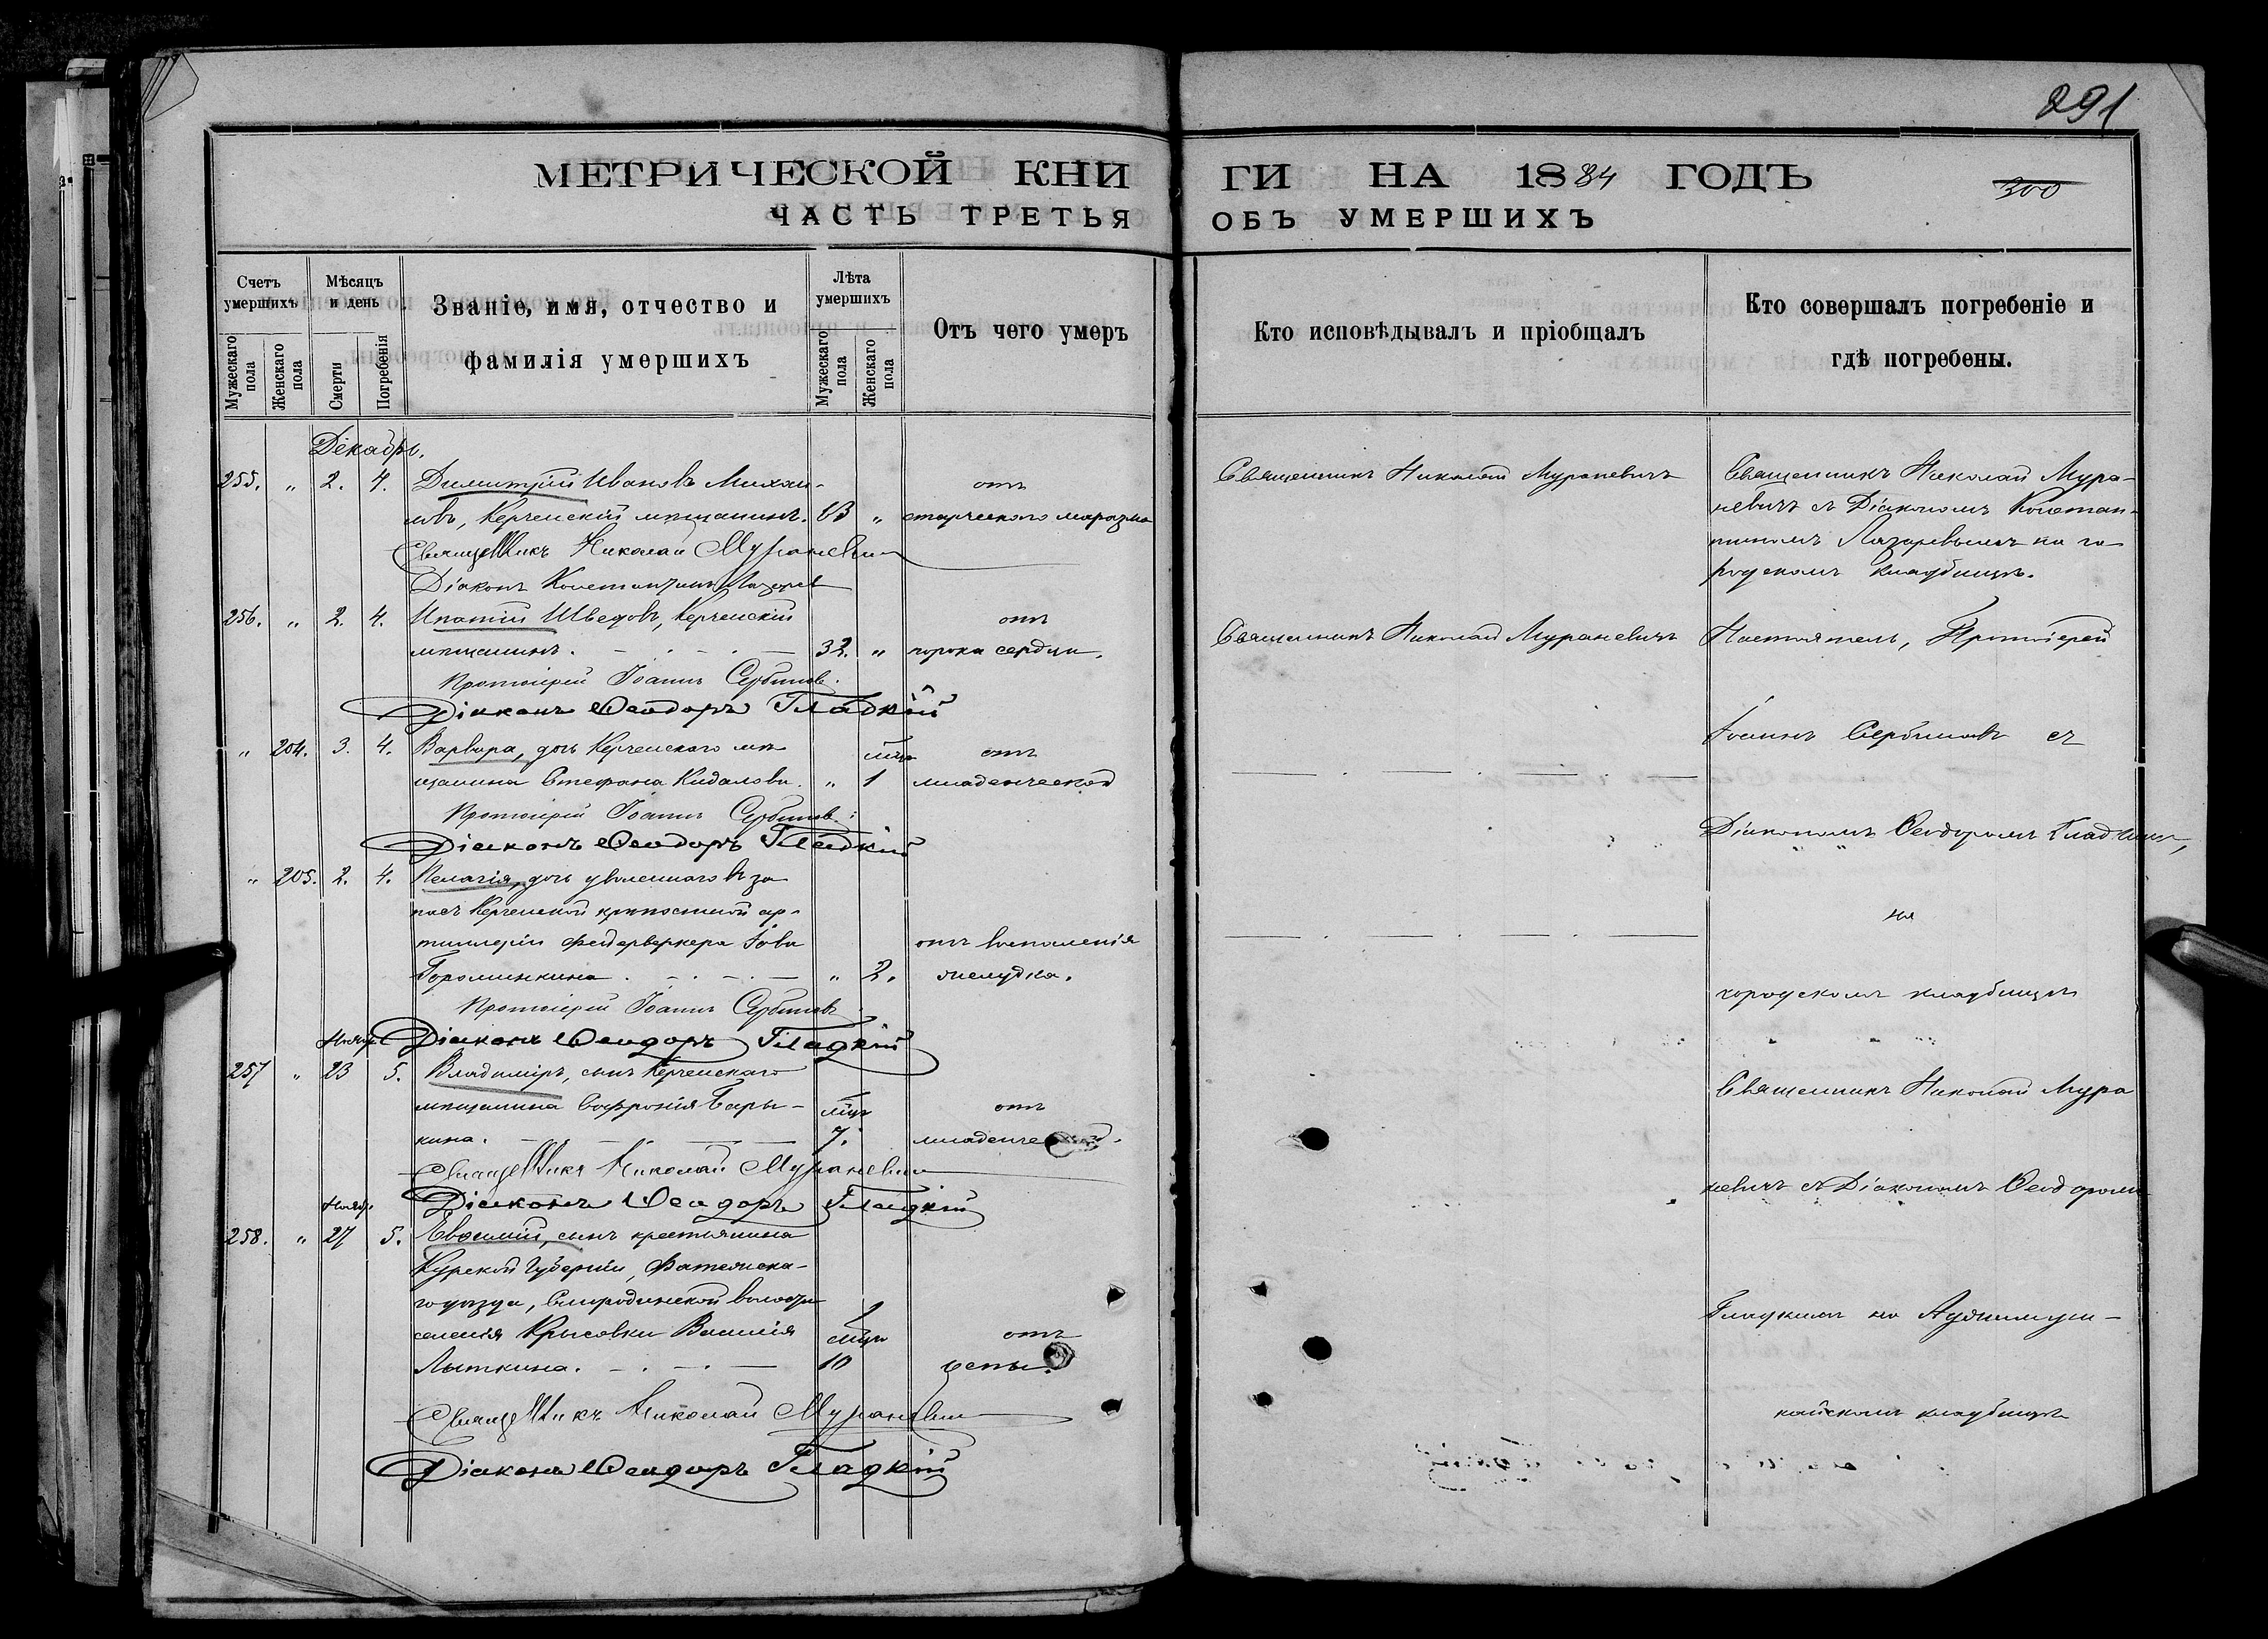 291
МЕТРИЧЕСКОЙ КНИГИ НА 1884 ГОДЪ
300
ЧАСТЬ ТРЕТЬЯ ОБЪ УМЕРШИХЪ
Счетъ умершихъ
Мужескаго пола
Женскаго пола
Мѣсяцъ и день
Смерти
Погребенія
Званіе, имя, отчество и
фамилія умершихъ
Лѣта умершихъ
Мужескаго пола
Женскаго пола
Отъ чего умеръ
Кто исповѣдывалъ и пріобщалъ
Кто совершалъ погребеніе и
гдѣ погребены.
Декабрь.
255. " 2. 4. Димитрій Ивановъ Михай- отъ Священникъ Николай Мураневичъ Священникъ Николай Мура-
ловъ, Керченскій мѣщанинъ. 83 " старческаго маразма невичъ съ Діакономъ Констан-
Священникъ Николай Мураневичъ тиномъ Лазаревымъ на го-
Діаконъ Константинъ Лазарев родскомъ кладбищѣ.
256. " 2. 4. Ипатій Шведовъ, Керченскій отъ Священникъ Николай Мураневичъ Настоятель, Протоіерей
мѣщанинъ. 32. " порока сердца.
Протоіерей Іоаннъ Сербиновъ.
Діаконъ Ѳеодоръ Гладкій
Іоаннъ Сербиновъ съ
" 204. 3. 4. Варвара, дочь Керченскаго мѣ- мѣс. отъ
щанина Стефана Кидалова. " 1 младенческой
Протоіерей Іоаннъ Сербиновъ.
Діакономъ Ѳеодоромъ Гладкимъ,
Діаконъ Ѳеодоръ Гладкій
" 205. 2. 4. Пелагія, дочь уволеннаго въ за-
пасъ Керченской крѣпостной ар- на
тиллеріи фейерверкера Іова отъ воспаленія
Горомынкина " 2. желудка.
городскомъ кладбищѣ
Протоіерей Іоаннъ Сербиновъ
Нояб. Діаконъ Ѳеодоръ Гладкій
257 " 23 5. Владиміръ, сынъ Керченскаго Священникъ Николай Мура
мѣщанина Софронія Бары- мѣс. отъ
кина. 7. младенческой.
Священникъ Николай Мураневичъ
невичъ съ Діакономъ Ѳеодоромъ
Нояб. Діаконъ Ѳеодоръ Гладкій
258. " 27 5. Евѳимій, сынъ крестьянина
Курской Губерніи, Фатежска-
го уѣзда, Смородинской волости 1 Гладкимъ на Аджимуш-
селенія Крысовки Василія мѣс. отъ
Лыткина. 10 оспы.
Священникъ Николай Мураневичъ кайскомъ кладбищѣ
Діаконъ Ѳеодоръ Гладкій